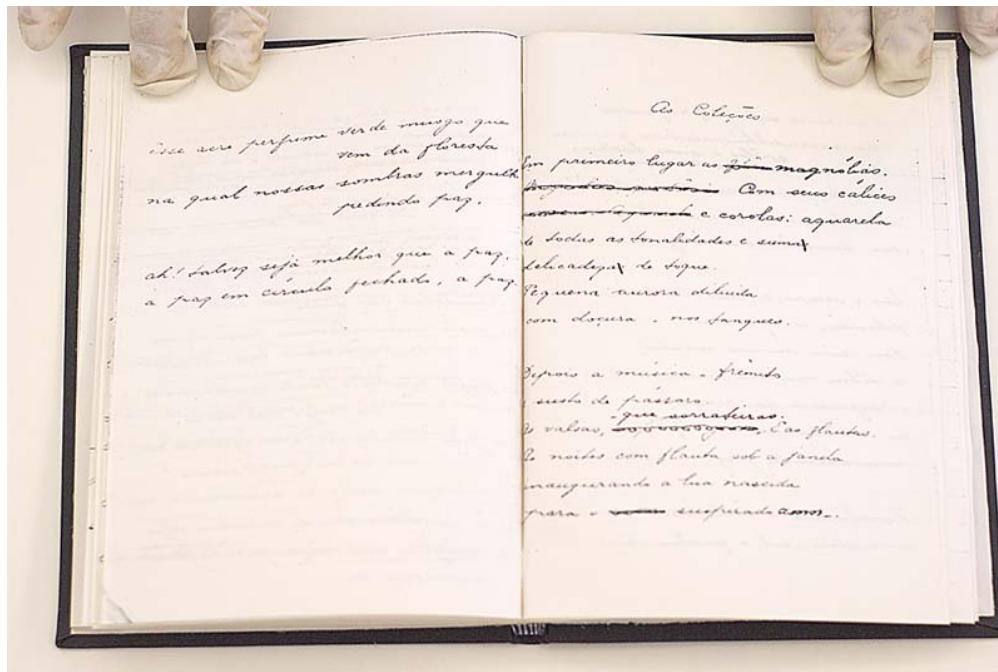 esse acre perfume verde musgo que
vem da floresta
na qual nossas sombras mergulh
pedindo paz.
ah! talvez seja melhor que a paz,
a paz em círculo fechado, a paz
As Coleções
Em primeiro lugar as magnólias.
Com seus cálices
e corolas: aquarela
de todas as tonalidades e suma
delicadeza de toque.
Pequena aurora diluida
com doçura, nos tanques.
Depois a música. frêmito
e susto de pássaro.
que sorrateiras.
As valsas, E as flautas.
As noites com flauta sob a janela
inaugurando a lua nascida
para o suspirado amor.